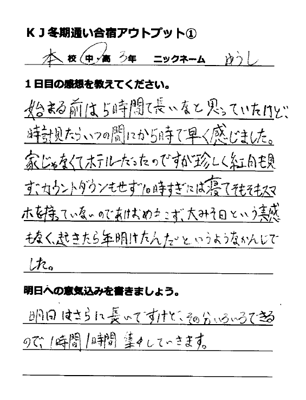 KJ冬期通い合宿アウトプット①
本校 中・高 3年 ニックネーム ゆうし
1日目の感想を教えてください。
始まる前は5時間て長いなと思っていたけど、
時計見たらいつの間にか5時で早く感じました。
家じゃなくてホテルだったのですが珍しく紅白も見
ず、カウントダウンもせず10時すぎには寝てそもそもスマ
ホを持っていないのであけおめもこず、大みそ日という実感
もなく、起きたら年明けたんだというようなかんじで
した。
明日への意気込みを書きましょう。
明日はさらに長いですけど、その分いろいろできる
ので、1時間1時間集中していきます。